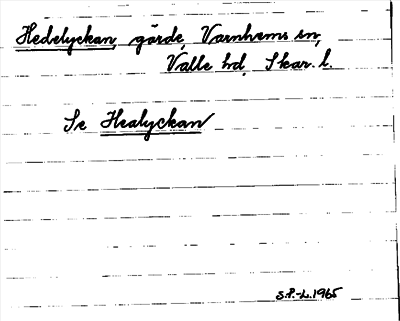 Hedelyckan, gärde, Varnhems sn,
Valle hd, Skar. l.
Se Healyckan
S.P.-L. 1965